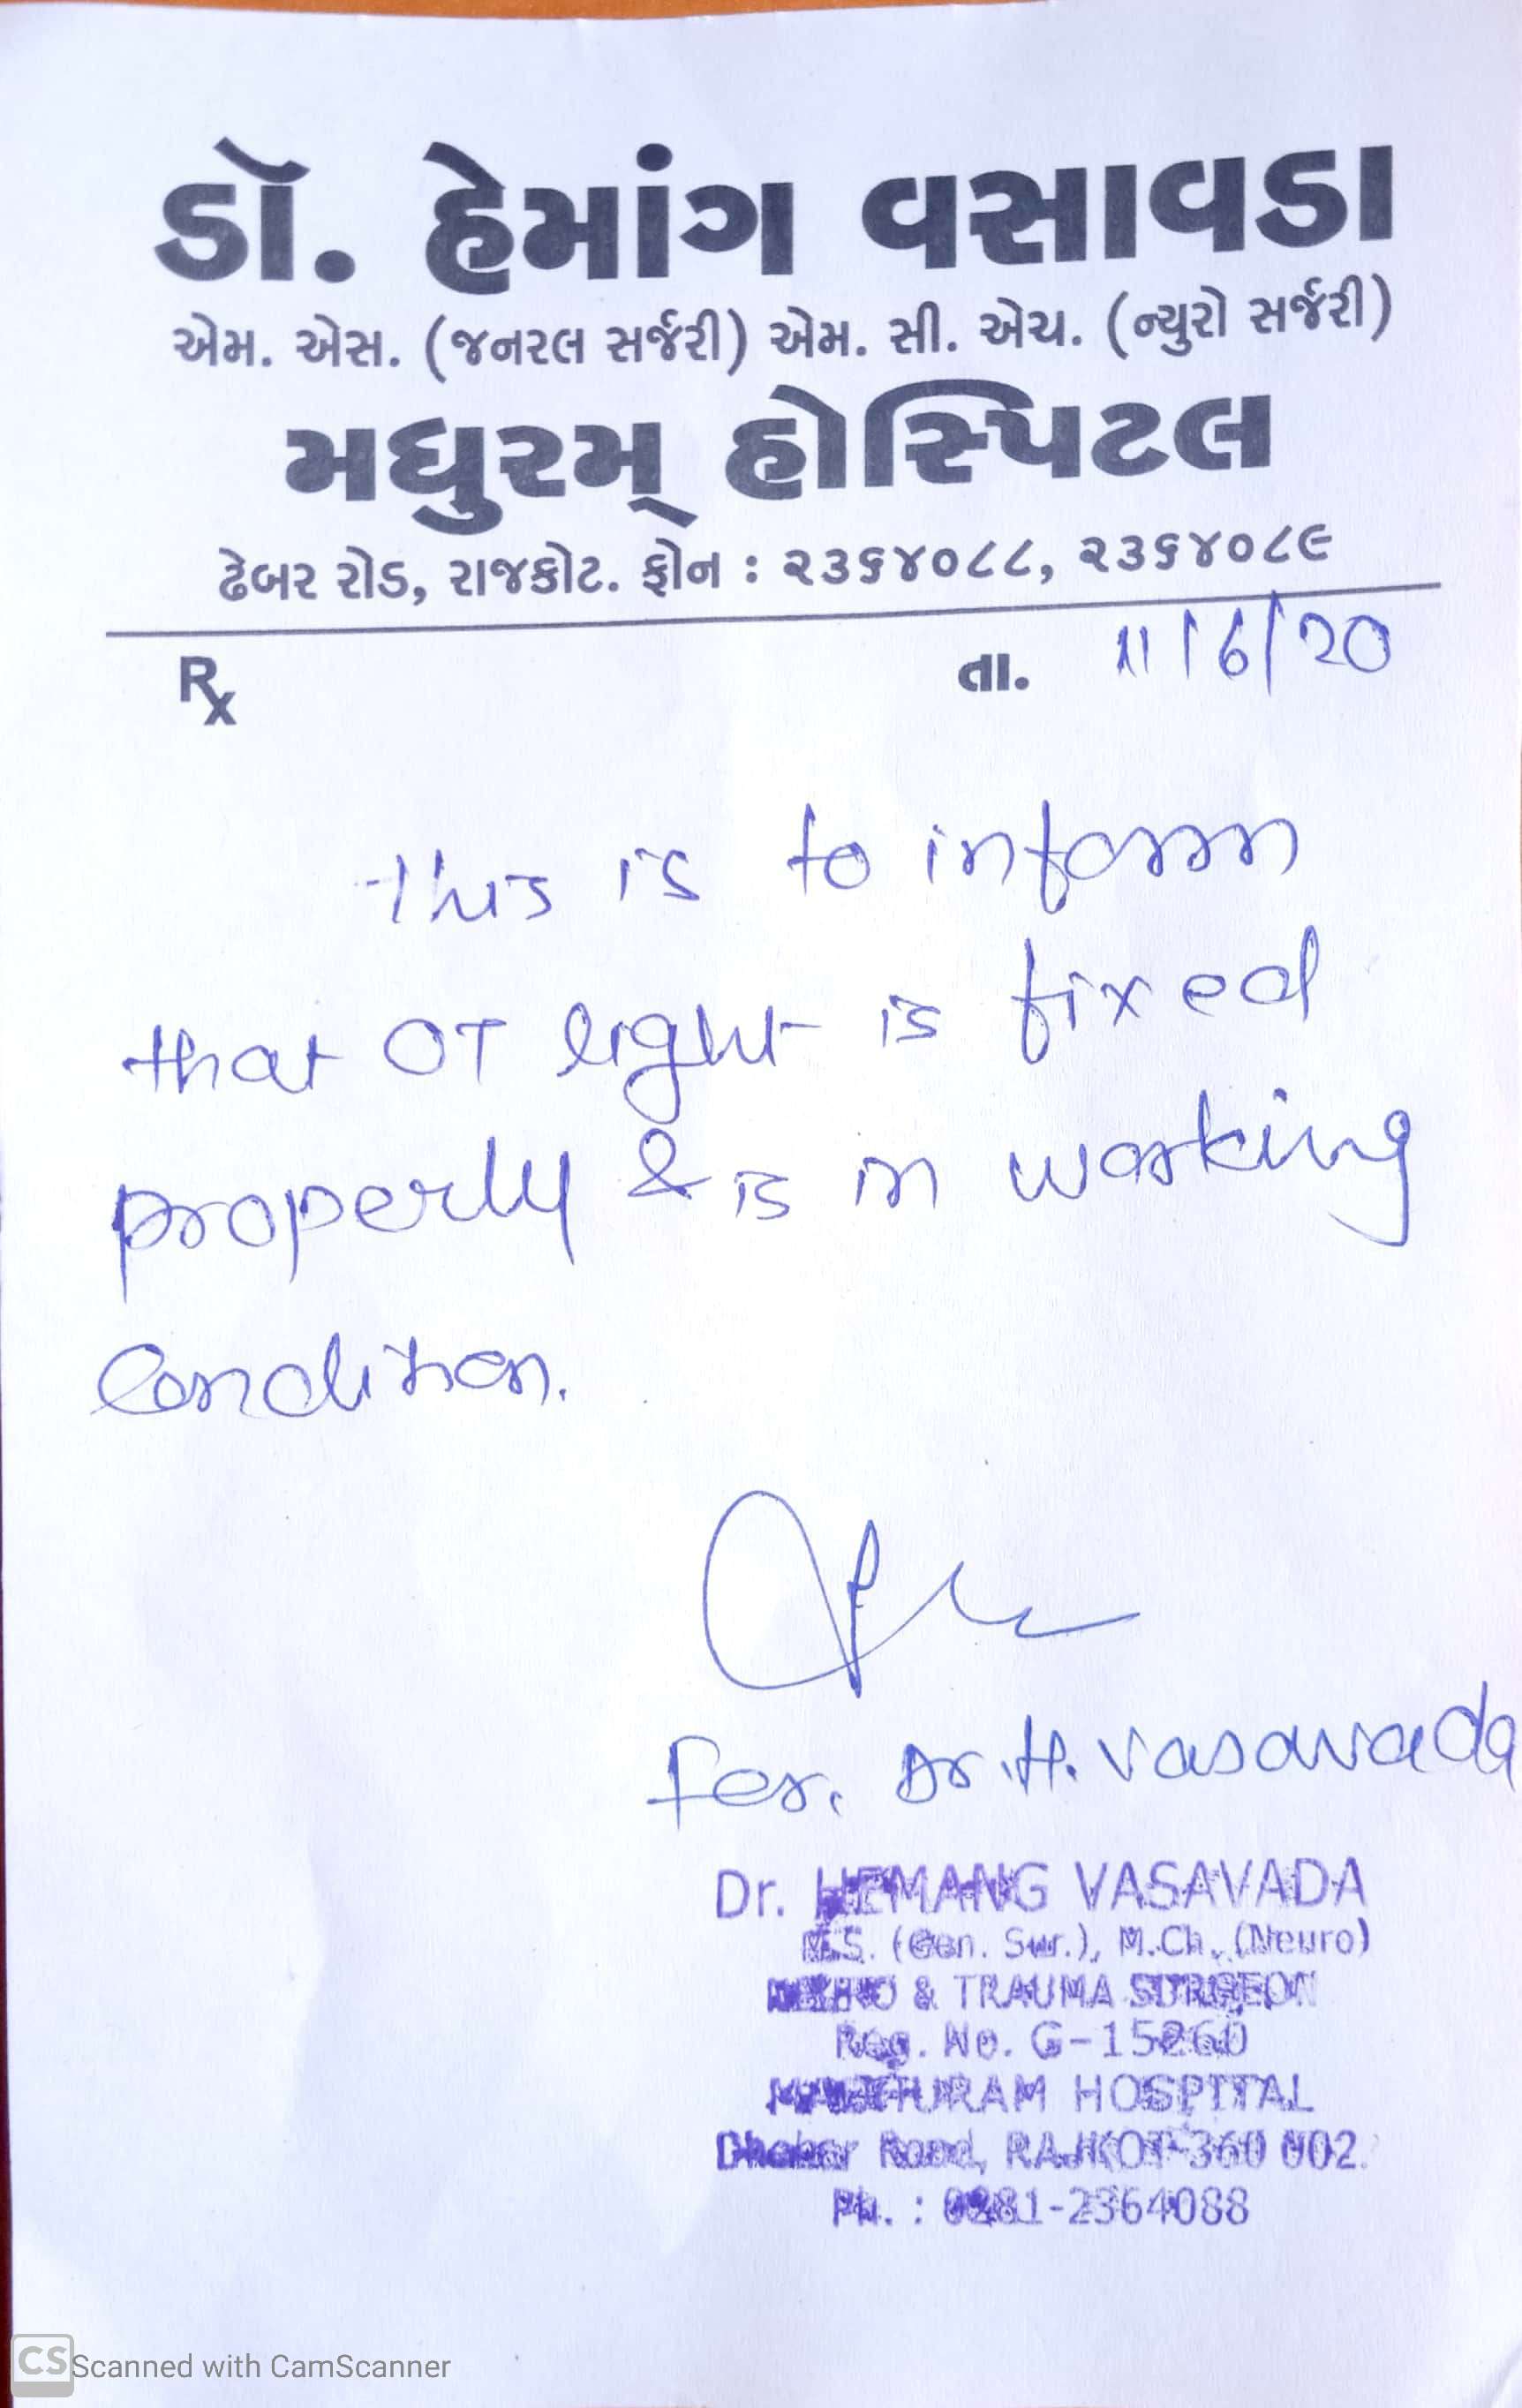 ડૉ. હેમાંગ વસાવડા
એમ. એસ. (જનરલ સર્જરી) એમ. સી. એચ. (ન્યુરો સર્જરી)
મધુરમ્ હોસ્પિટલ
ઢેબર રોડ, રાજકોટ. ફોન : ૨૩૬૪૦૮૮, ૨૩૬૪૦૮૯
Rx
તા. 11/6/20
This is to inform
that OT light is fixed
properly & is in working
Condition.
For. Dr. H. Vasavada
Dr. HEMANG VASAVADA
M.S. (Gen. Sur.), M.Ch. (Neuro)
NEURO & TRAUMA SURGEON
Reg. No. G-15260
MADHURAM HOSPITAL
Dhebar Road, RAJKOT-360 002.
Ph. : 0281-2364088
CS Scanned with CamScanner